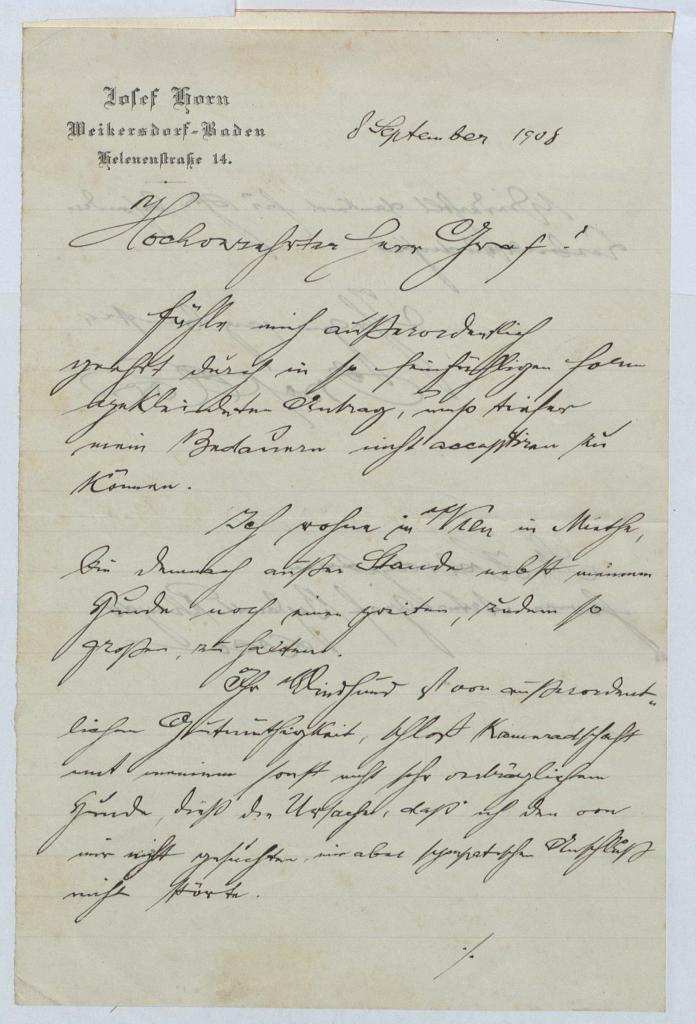 Josef Horn
Weikersdorf-Baden
Helenenstraße 14.
8 September 1908
Hochverehrter Herr Graf!
Fühle mich außerordentlich
geehrt durch in so feinfühligen Form
gekleideten Antrag, umso tiefer
mein Bedauern nicht acceptiren zu
können.
Ich wohne in Wien in Miethe,
bin demnach außer Stande nebst meinem
Hunde noch einen zweiten, zudem so
großen, zu halten.
Ihr Windhund ist von außerordent-
lichen Gutmüthigkeit, schloß Kameradschaft
mit meinem sonst nicht sehr verträglichem
Hunde, dieß die Ursache, daß ich den von
mir nicht gesuchten, mir aber sympatischen Anschluß
nicht störte.
./.